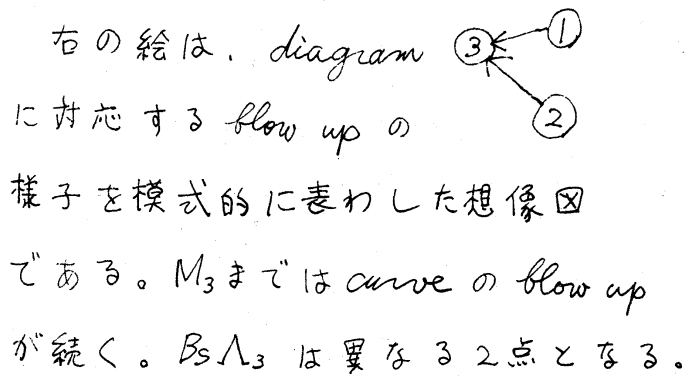 右の絵は、diagram ③ ①
に対応する blow up の ②
様子を模式的に表わした想像図
である。M₃までは curve の blow up
が続く。Bs Λ₃ は異なる2点となる。